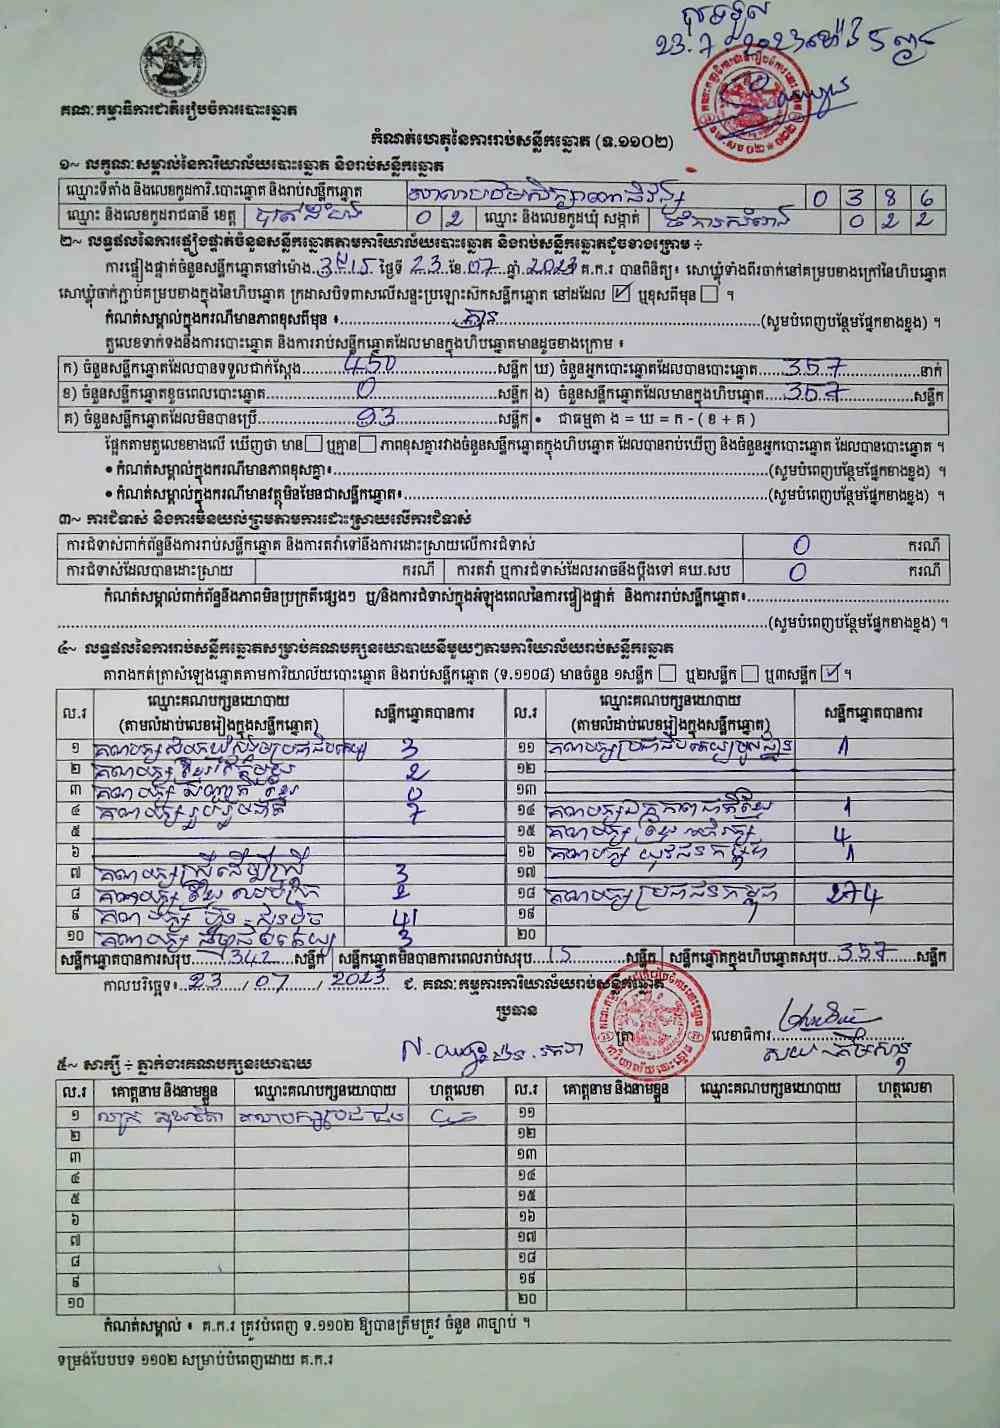 23.7.2023 ម៉ោង 5
គណៈកម្មាធិការជាតិរៀបចំការបោះឆ្នោត
កំណត់ហេតុនៃការរាប់សន្លឹកឆ្នោត (ទ.១១០២)
១~ លក្ខណៈសម្គាល់នៃការិយាល័យបោះឆ្នោត និងរាប់សន្លឹកឆ្នោត
ឈ្មោះទីតាំង និងលេខកូដការិ.បោះឆ្នោត និងរាប់សន្លឹកឆ្នោត 0 3 8 6
ឈ្មោះ និងលេខកូដរាជធានី ខេត្ត បាត់ដំបង 0 2 ឈ្មោះ និងលេខកូដឃុំ សង្កាត់ ចំការសំរោង 0 2 2
២~ លទ្ធផលនៃការផ្ទៀងផ្ទាត់ចំនួនសន្លឹកឆ្នោតតាមការិយាល័យបោះឆ្នោត និងរាប់សន្លឹកឆ្នោតដូចខាងក្រោម ៖
ការផ្ទៀងផ្ទាត់ចំនួនសន្លឹកឆ្នោតនៅម៉ោង 3:15 ថ្ងៃទី 23 ខែ 07 ឆ្នាំ 2023 គ.ក.រ បានពិនិត្យ៖ សោឃ្លុំទាំងពីរចាក់នៅគម្របខាងក្រៅនៃហិបឆ្នោត
សោឃ្លុំចាក់ភ្ជាប់គម្របខាងក្នុងនៃហិបឆ្នោត ក្រដាសបិទពាសលើសន្ទះប្រឡោះស៊កសន្លឹកឆ្នោត នៅដដែល ☑ ឬខុសពីមុន ☐ ។
កំណត់សម្គាល់ក្នុងករណីមានភាពខុសពីមុន ៖ គ្មាន (សូមបំពេញបន្ថែមផ្នែកខាងខ្នង) ។
តួលេខទាក់ទងនឹងការបោះឆ្នោត និងការរាប់សន្លឹកឆ្នោតដែលមានក្នុងហិបឆ្នោតមានដូចខាងក្រោម ៖
ក) ចំនួនសន្លឹកឆ្នោតដែលបានទទួលជាក់ស្តែង 450 សន្លឹក ឃ) ចំនួនអ្នកបោះឆ្នោតដែលបានបោះឆ្នោត 357 នាក់
ខ) ចំនួនសន្លឹកឆ្នោតខូចពេលបោះឆ្នោត 0 សន្លឹក ង) ចំនួនសន្លឹកឆ្នោតដែលមានក្នុងហិបឆ្នោត 357 សន្លឹក
គ) ចំនួនសន្លឹកឆ្នោតដែលមិនបានប្រើ 93 សន្លឹក • ជាធម្មតា ង = ឃ = ក - ( ខ + គ )
ផ្អែកតាមតួលេខខាងលើ ឃើញថា មាន ☐ ឬគ្មាន ☐ ភាពខុសគ្នារវាងចំនួនសន្លឹកឆ្នោតក្នុងហិបឆ្នោត ដែលបានរាប់ឃើញ និងចំនួនអ្នកបោះឆ្នោត ដែលបានបោះឆ្នោត ។
• កំណត់សម្គាល់ក្នុងករណីមានភាពខុសគ្នា៖ (សូមបំពេញបន្ថែមផ្នែកខាងខ្នង) ។
• កំណត់សម្គាល់ក្នុងករណីមានវត្ថុមិនមែនជាសន្លឹកឆ្នោត៖ (សូមបំពេញបន្ថែមផ្នែកខាងខ្នង) ។
៣~ ការជំទាស់ និងការមិនយល់ព្រមតាមការដោះស្រាយលើការជំទាស់
ការជំទាស់ពាក់ព័ន្ធនឹងការរាប់សន្លឹកឆ្នោត និងការតវ៉ាទៅនឹងការដោះស្រាយលើការជំទាស់ 0 ករណី
ការជំទាស់ដែលបានដោះស្រាយ ករណី ការតវ៉ា ឬការជំទាស់ដែលអាចនឹងប្តឹងទៅ គឃ.សប 0 ករណី
កំណត់សម្គាល់ពាក់ព័ន្ធនឹងភាពមិនប្រក្រតីផ្សេងៗ ឬ/និងការជំទាស់ក្នុងអំឡុងពេលនៃការផ្ទៀងផ្ទាត់ និងការរាប់សន្លឹកឆ្នោត៖
(សូមបំពេញបន្ថែមផ្នែកខាងខ្នង) ។
៤~ លទ្ធផលនៃការរាប់សន្លឹកឆ្នោតសម្រាប់គណបក្សនយោបាយនីមួយៗតាមការិយាល័យរាប់សន្លឹកឆ្នោត
តារាងកត់ត្រាសំឡេងឆ្នោតតាមការិយាល័យបោះឆ្នោត និងរាប់សន្លឹកឆ្នោត (ទ.១១០៨) មានចំនួន ១សន្លឹក ☐ ឬ២សន្លឹក ☐ ឬ៣សន្លឹក ☑ ។
ល.រ ឈ្មោះគណបក្សនយោបាយ (តាមលំដាប់លេខរៀងក្នុងសន្លឹកឆ្នោត) សន្លឹកឆ្នោតបានការ ល.រ ឈ្មោះគណបក្សនយោបាយ (តាមលំដាប់លេខរៀងក្នុងសន្លឹកឆ្នោត) សន្លឹកឆ្នោតបានការ
១ គណបក្ស 3 ១១ គណបក្សប្រជាធិបតេយ្យមូលដ្ឋាន 1
២ គណបក្ស 2 ១២
៣ គណបក្ស 0 ១៣
៤ គណបក្ស 7 ១៤ គណបក្សឯកភាពជាតិខ្មែរ 1
៥ ១៥ គណបក្ស 4
៦ ១៦ គណបក្ស យុវជនកម្ពុជា 1
៧ គណបក្សស្ត្រីដើម្បីស្ត្រី 3 ១៧
៨ គណបក្ស 2 ១៨ គណបក្សប្រជាជនកម្ពុជា 274
៩ គណបក្ស ហ្វ៊ុនស៊ិនប៉ិច 41 ១៩
១០ គណបក្ស ធម្មាធិបតេយ្យ 3 ២០
សន្លឹកឆ្នោតបានការសរុប 342 សន្លឹក សន្លឹកឆ្នោតមិនបានការពេលរាប់សរុប 15 សន្លឹក សន្លឹកឆ្នោតក្នុងហិបឆ្នោតសរុប 357 សន្លឹក
កាលបរិច្ឆេទ៖ 23 / 07 / 2023 ជ. គណៈកម្មការការិយាល័យរាប់សន្លឹកឆ្នោត
ប្រធាន
ត្រា លេខាធិការ
៥~ សាក្សី ៖ ភ្នាក់ងារគណបក្សនយោបាយ
ល.រ គោត្តនាម និងនាមខ្លួន ឈ្មោះគណបក្សនយោបាយ ហត្ថលេខា ល.រ គោត្តនាម និងនាមខ្លួន ឈ្មោះគណបក្សនយោបាយ ហត្ថលេខា
១ ១១
២ ១២
៣ ១៣
៤ ១៤
៥ ១៥
៦ ១៦
៧ ១៧
៨ ១៨
៩ ១៩
១០ ២០
កំណត់សម្គាល់ ៖ គ.ក.រ ត្រូវបំពេញ ទ.១១០២ ឱ្យបានត្រឹមត្រូវ ចំនួន ៣ច្បាប់ ។
ទម្រង់បែបបទ ១១០២ សម្រាប់បំពេញដោយ គ.ក.រ